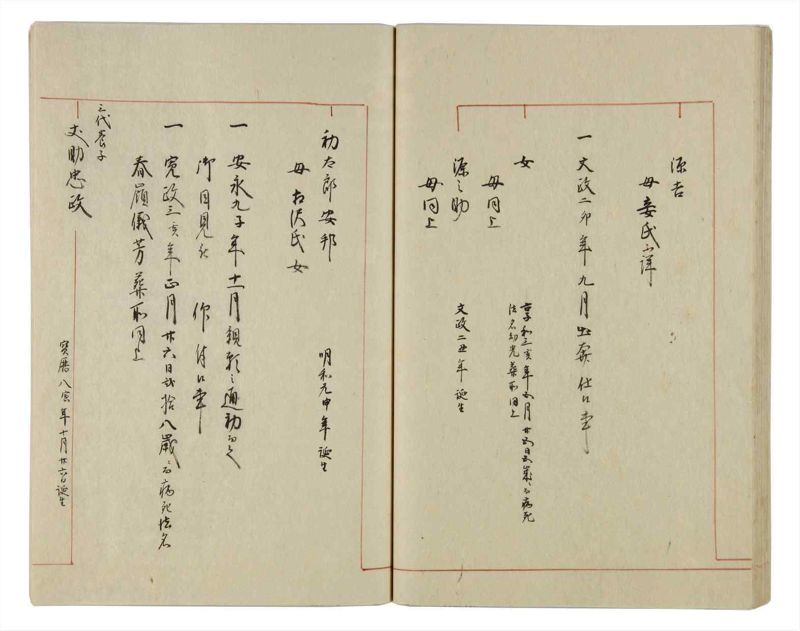 源吉
母妾氏不詳
一 文政二卯年九月出奔仕候
女
享和三亥年五月廿四日弐歳ニ而病死
法名幻光葬所同上
母同上
源之助
文政二丑年誕生
母同上
初太郎安邦
明和元申年誕生
母古沢氏女
一 安永九子年十一月親類之通初而
御目見被 仰付候
一 寛政三亥年正月廿六日弐拾八歳ニ而病死法名
春顔儀芳葬所同上
三代養子
丈助忠政
宝暦八寅年十月廿六日誕生